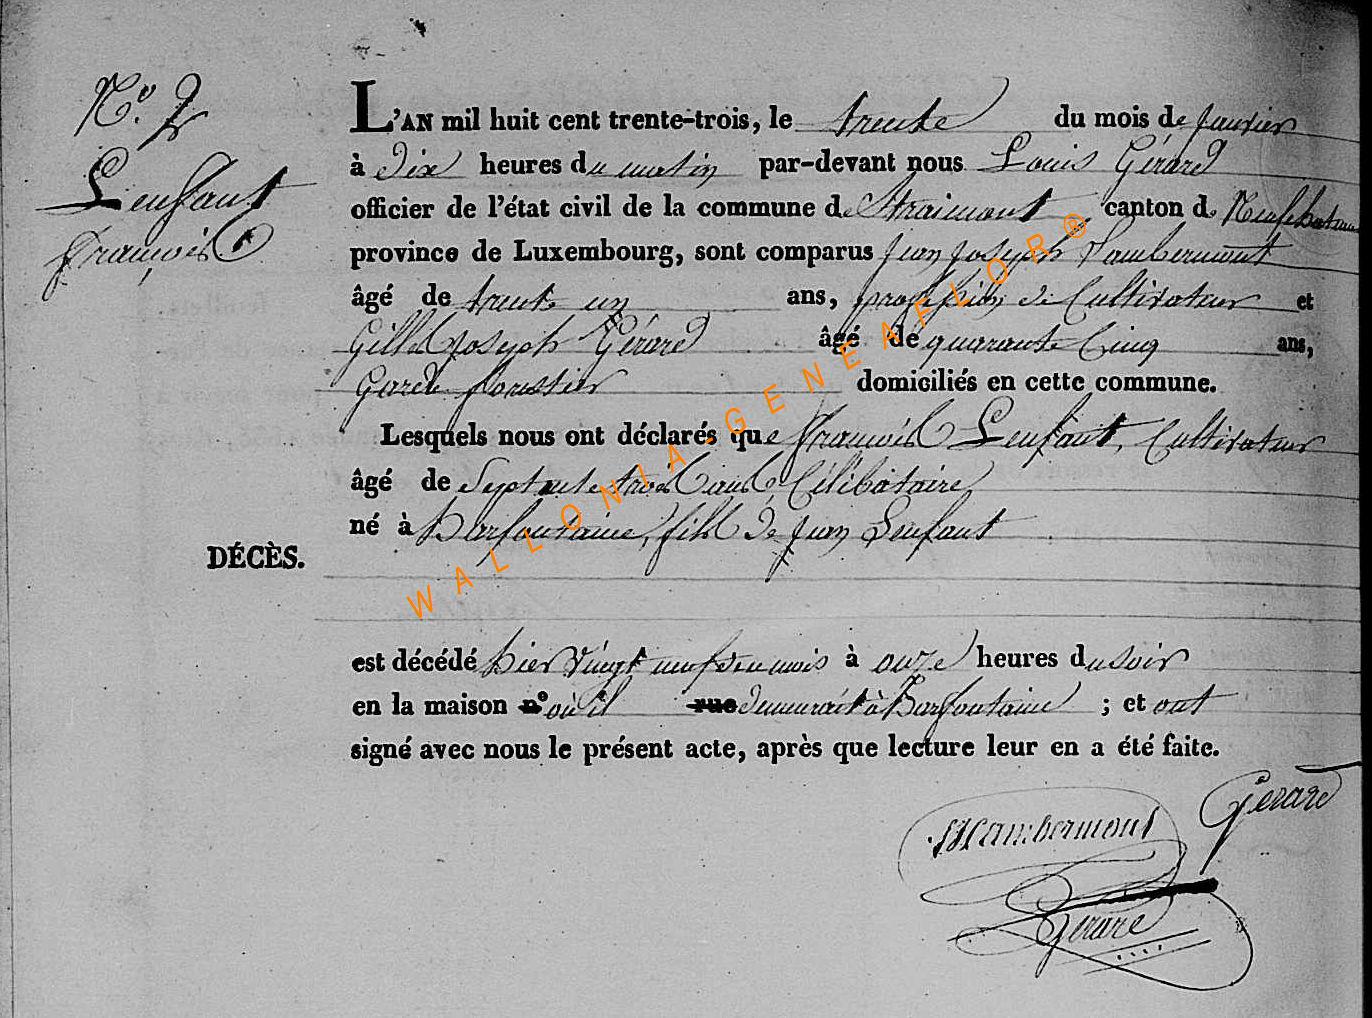 N.o 2
Lenfant
François
L'AN mil huit cent trente-trois, le trente du mois de Janvier
à Dix heures du matin par-devant nous Louis Gérard
officier de l'état civil de la commune de Straimont canton de Neufchateau
province de Luxembourg, sont comparus Jean Joseph Lambermont
âgé de trente un ans, profession de Cultivateur et
Gilles Joseph Gérard âgé de quarante Cinq ans,
Garde forestier domiciliés en cette commune.
Lesquels nous ont déclarés que François Lenfant, Cultivateur
âgé de Septante trois ans, Célibataire
né à Barfontaine, fils de Jean Lenfant
DÉCÈS.
est décédé hier vingt neuf du mois à onze heures du soir
en la maison n° où il rue demeurait à Barfontaine ; et ont
signé avec nous le présent acte, après que lecture leur en a été faite.
Gerard
Lambermont
Gerard
WALLONIA - GENEAFLOR®